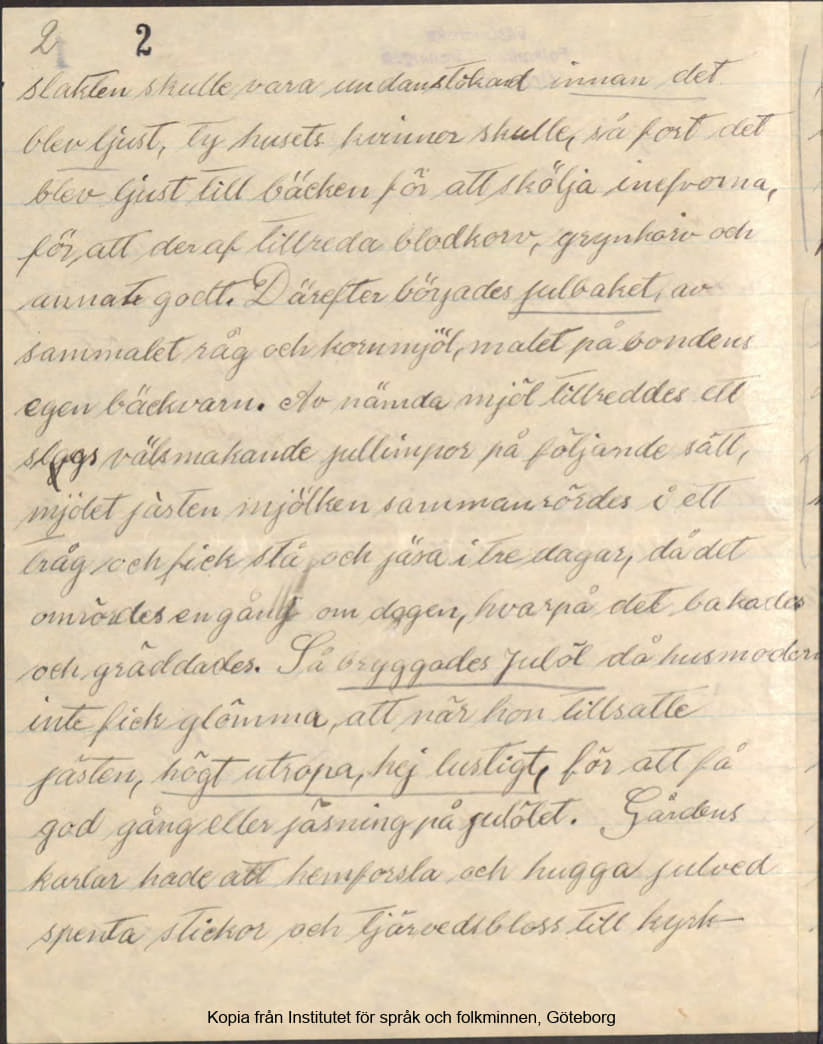 2 2
slakten skulle vara undanstökad innan det
blev ljust, ty husets kvinnor skulle, så fort det
blev ljust till bäcken för att skölja inefvorna,
för, att deraf tillreda blodkorv, grynkorv och
annat godt. Därefter börjades julbaket, av
sammalet råg och kornmjöl, malet på bondens
egen bäckvarn. Av nämda mjöl tillreddes ett
slags välsmakande jullimpor på följande sätt,
mjölet jästen mjölken sammanrördes i ett
tråg och fick stå och jäsa i tre dagar, då det
omrördes en gång om dagen, hvarpå det bakades
och gräddades. Så bryggades Julöl då husmodern
inte fick glömma, att när hon tillsatte
jästen, högt utropa, hej lustigt, för att få
god gång eller jäsning på julölet. Gårdens
karlar hade att hemforsla och hugga julved
spenta stickor och tjärvedsbloss till kyrk-
Kopia från Institutet för språk och folkminnen, Göteborg